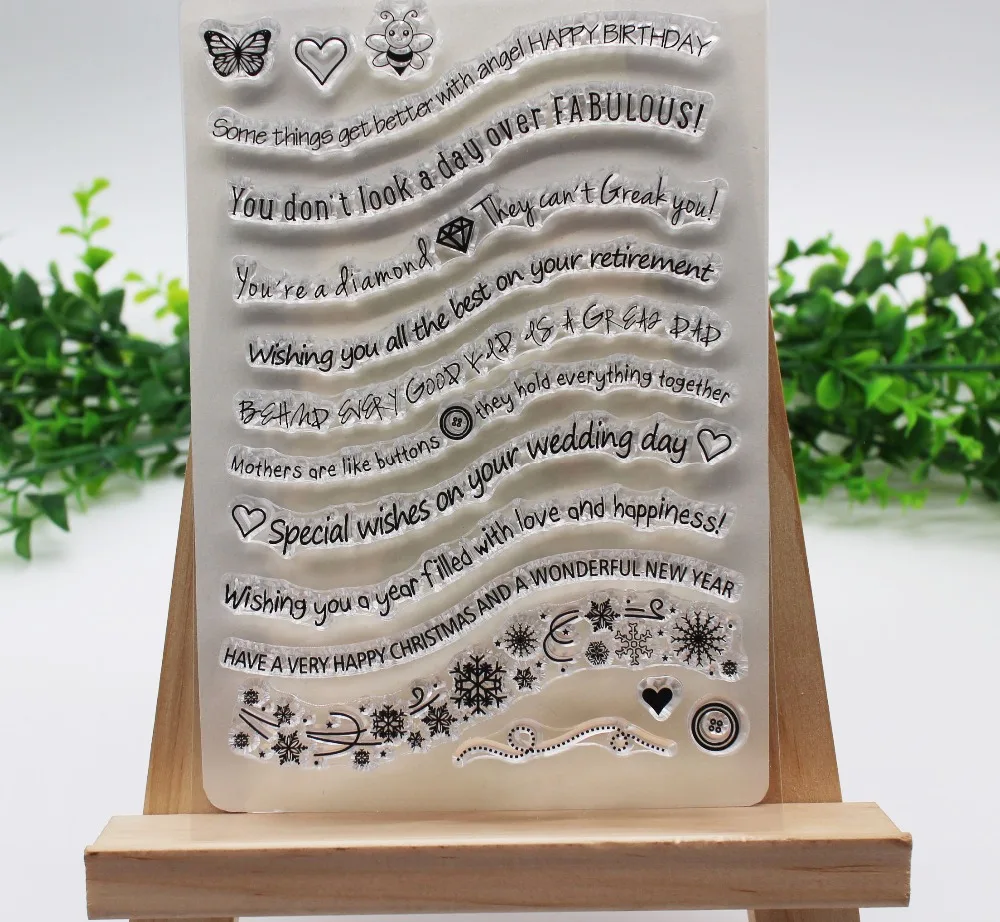 Some things get better with angel HAPPY BIRTHDAY
You don't look a day over FABULOUS!
You're a diamond They can't Greak you!
Wishing you all the best on your retirement
BEHIND EVERY GOOD KID IS A GREAT DAD
Mothers are like buttons they hold everything together
Special wishes on your wedding day
Wishing you a year filled with love and happiness!
HAVE A VERY HAPPY CHRISTMAS AND A WONDERFUL NEW YEAR